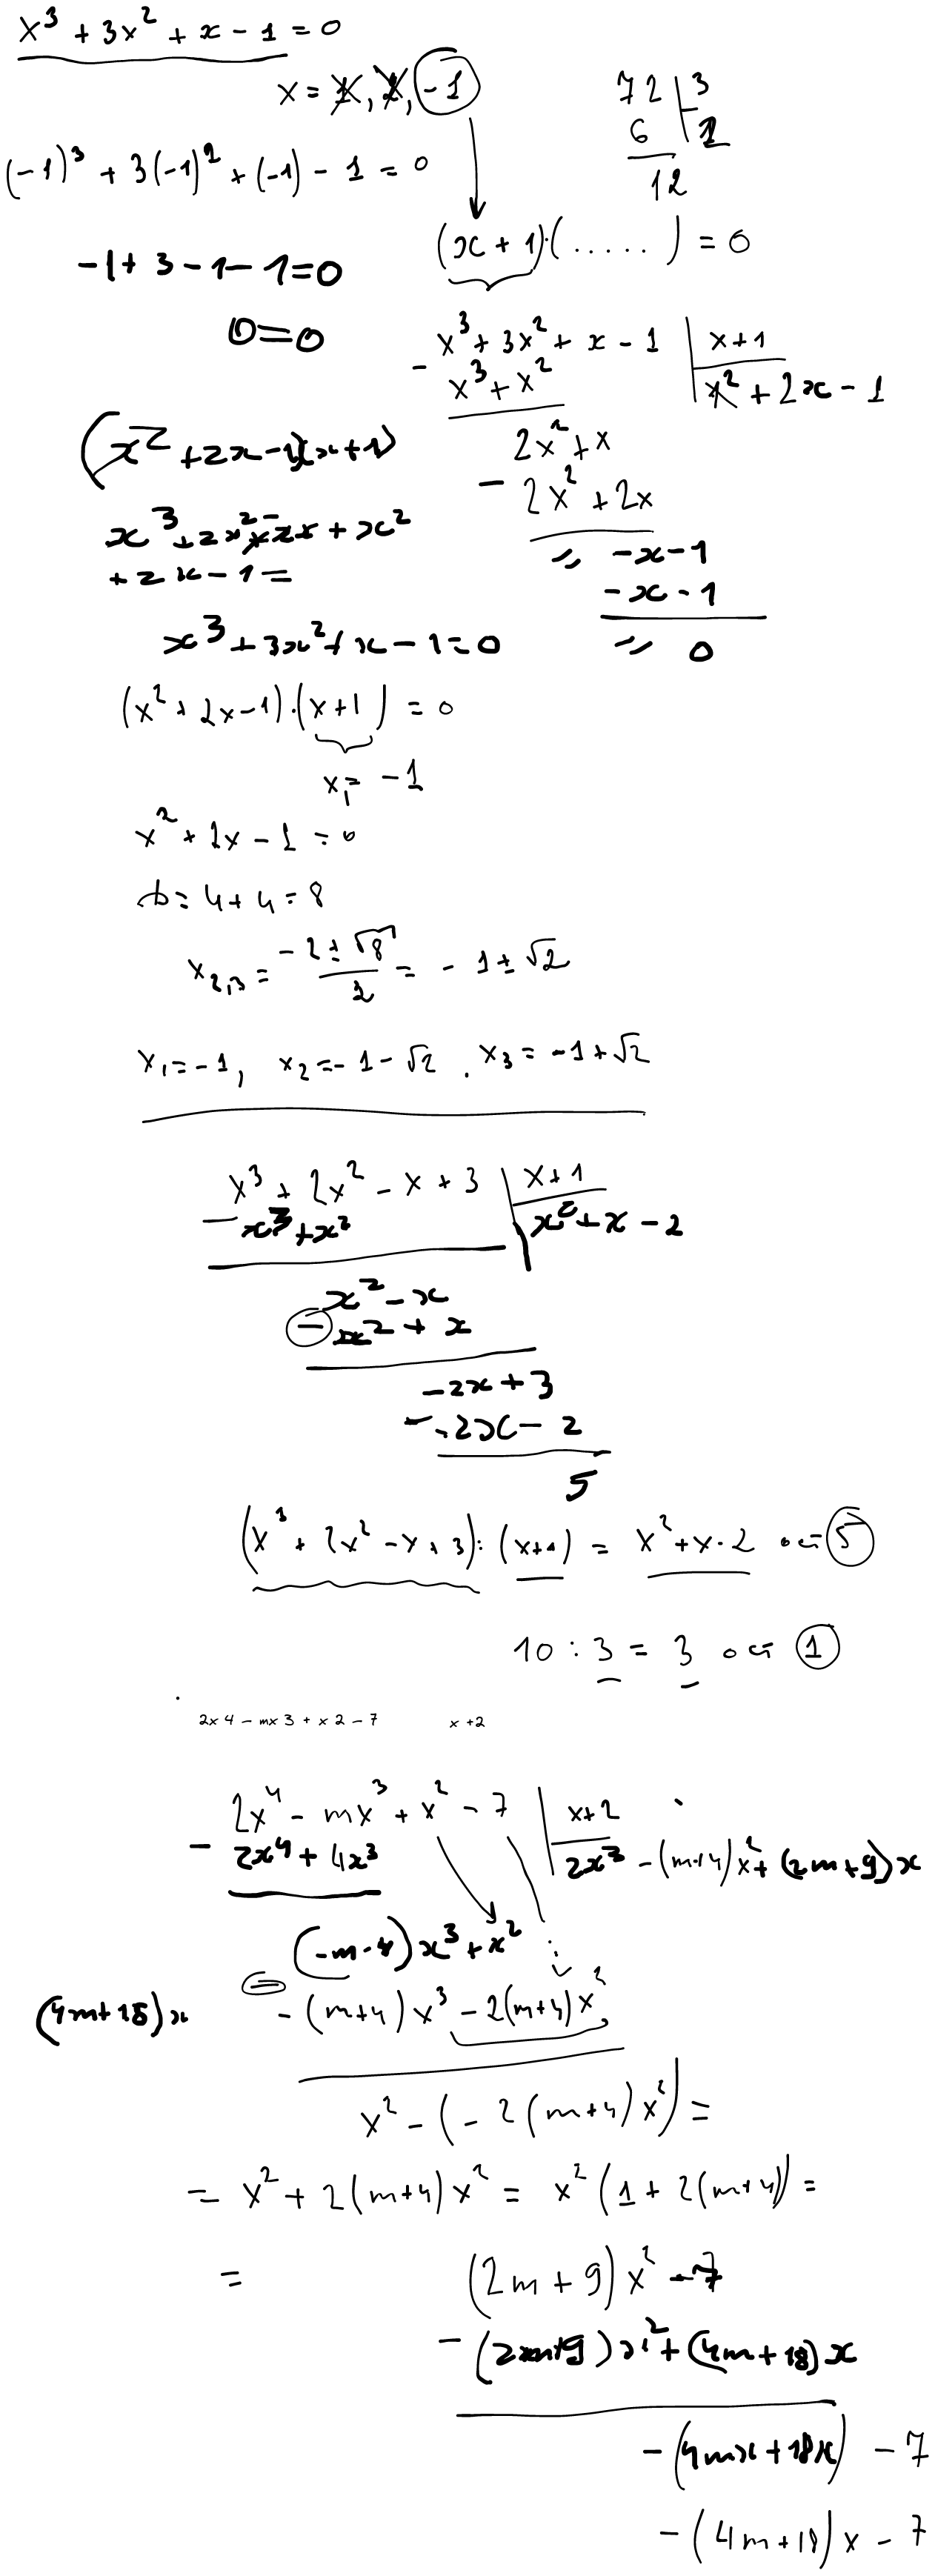 x³ + 3x² + x - 1 = 0
x = 1, 2, -1
72 | 3
6 2
12
(-1)³ + 3(-1)² + (-1) - 1 = 0
(x + 1)·(.....) = 0
-1 + 3 - 1 - 1 = 0
0 = 0
x³ + 3x² + x - 1 | x + 1
- x³ + x² x² + 2x - 1
2x² + x
(x² + 2x - 1)(x + 1)
- 2x² + 2x
x³ + 2x² - x + x²
+ 2x - 1 =
= -x - 1
-x - 1
x³ + 3x² + x - 1 = 0
= 0
(x² + 2x - 1)·(x + 1) = 0
x₁ = -1
x² + 2x - 1 = 0
D = 4 + 4 = 8
x₂,₃ = (-2 ± √8)/2 = -1 ± √2
x₁ = -1, x₂ = -1 - √2, x₃ = -1 + √2
x³ + 2x² - x + 3 | x + 1
- x³ + x² x² + x - 2
x² - x
- x² + x
-2x + 3
- -2x - 2
5
(x³ + 2x² - x + 3) : (x + 1) = x² + x - 2 ост 5
10 : 3 = 3 ост 1
2x4 - mx3 + x2 - 7 x + 2
2x⁴ - mx³ + x² - 7 | x + 2
- 2x⁴ + 4x³ 2x³ - (m+4)x² + (2m+9)x
(-m-4)x³ + x²
(4m+18)x
- -(m+4)x³ - 2(m+4)x²
x² - (-2(m+4)x²) =
= x² + 2(m+4)x² = x²(1 + 2(m+4)) =
= (2m + 9)x² - 7
- (2m+9)x² + (4m+18)x
-(4mx + 18x) - 7
-(4m+18)x - 7